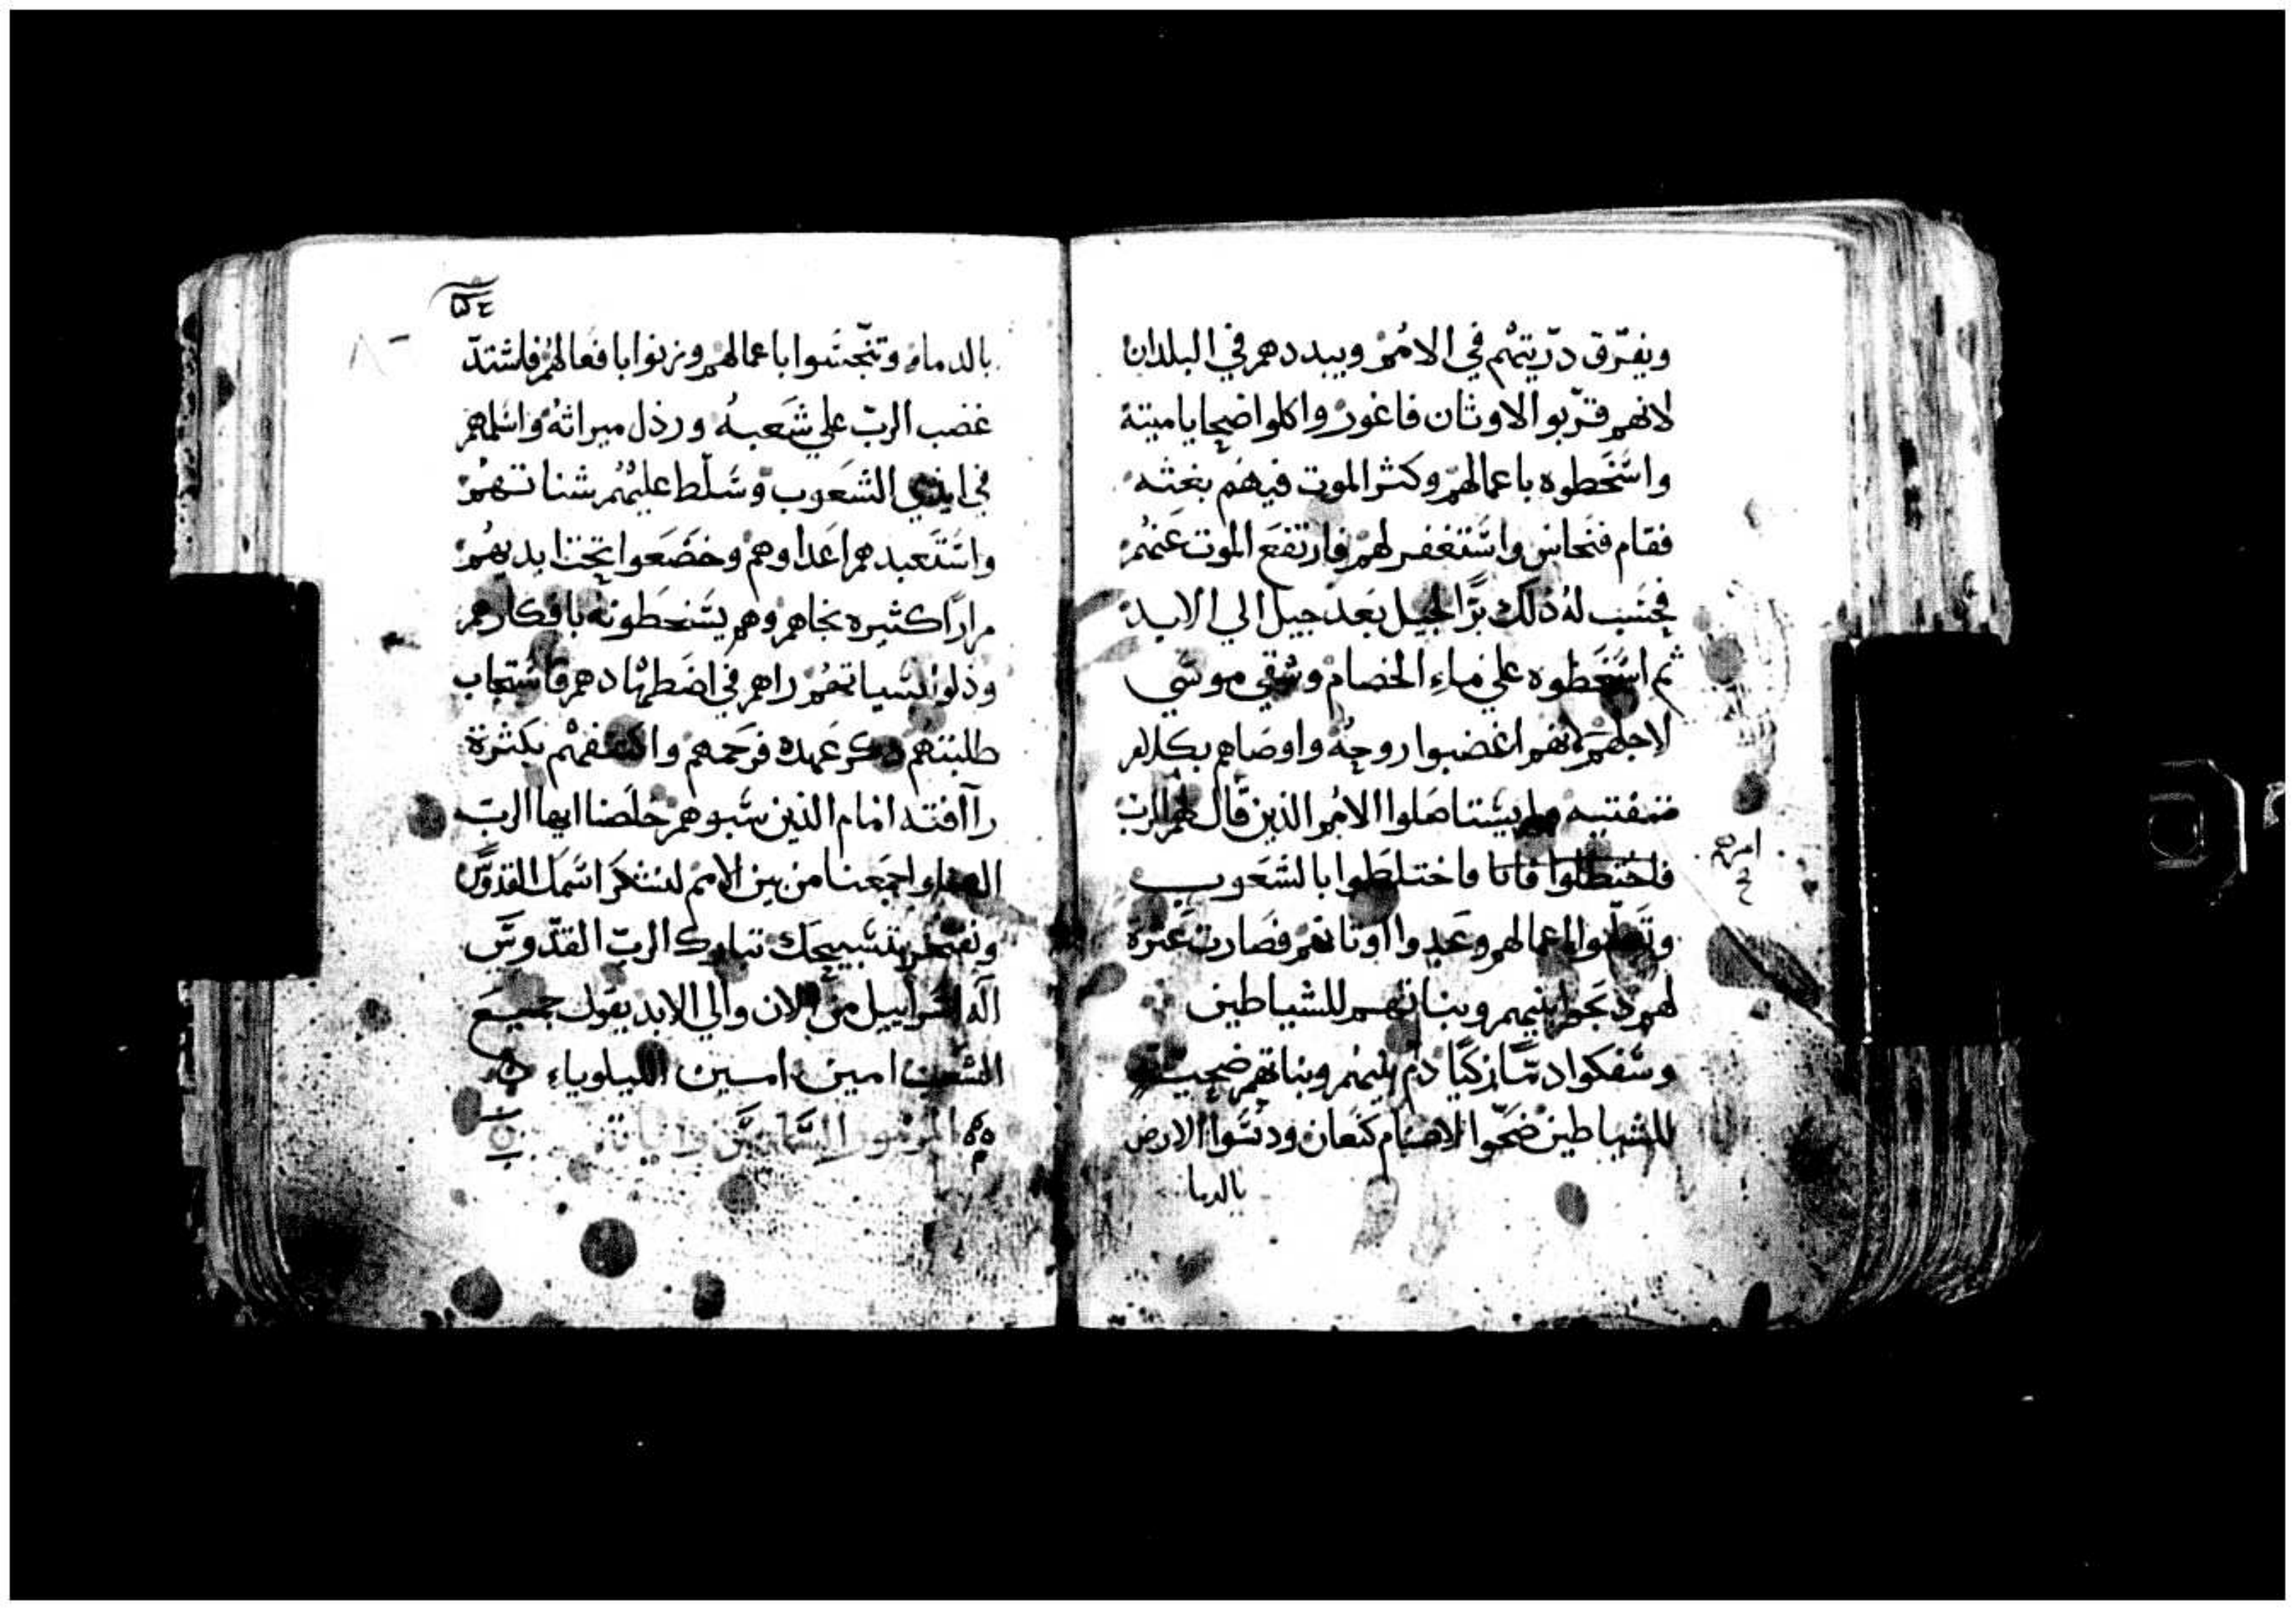 ويفرّق درّيتهم في الامم ويبددهم في البلدان
لانهم قرّبوا لاوثان فاغور واكلوا ضحايا ميتة
واسخطوه باعمالهم وكثر الموت فيهم بغتة
فقام فنحاس واستغفر لهم فارتفع الموت عنهم
فحسب له ذلك برًّا لجيل بعد جيل الي الابد
ثم اسخطوه علي ماء الخصام وشقي موسي
لاجلهم لانهم اغضبوا روحه واوصاهم بكلام
شفتيه ولم يستاصلوا الامم الذين قال لهم الرب
امرهم
فاختلطوا بالشعوب
وتعلموا اعمالهم وعبدوا اوثانهم فصارت عثرة
لهم ذبحوا بنيهم وبناتهم للشياطين
وسفكوا دمًا زكيًا دم بنيهم وبناتهم ضحية
للشياطين ضحّوا لاصنام كنعان ودنسوا الارض
بالدما
بالدماء وتنجسوا باعمالهم وزنوا بافعالهم فاشتدّ
غضب الربّ علي شعبه ورذل ميراثه واسلمهم
في ايدي الشعوب وسلّط عليهم شناتهم
واستعبدهم اعداوهم وخضعوا تحت ايديهم
مرارًا كثيره نجاهم وهم يسخطونه بافكارهم
وذلوا بسياتهم راهم في اضطهادهم فاستجاب
طلبتهم ذكر عهده فرحمهم واكتنفهم بكثرة
راآفته امام الذين سبوهم خلصنا ايها الربّ
الهنا واجمعنا من بين الامم لنشكر اسمك القدوّس
ونفتخر بتسبيحك تبارك الربّ القدّوس
اله اسراييل من الان والي الابد يقول جميع
الشعب امين امين الليلوياء
المزمور السادس والمايه